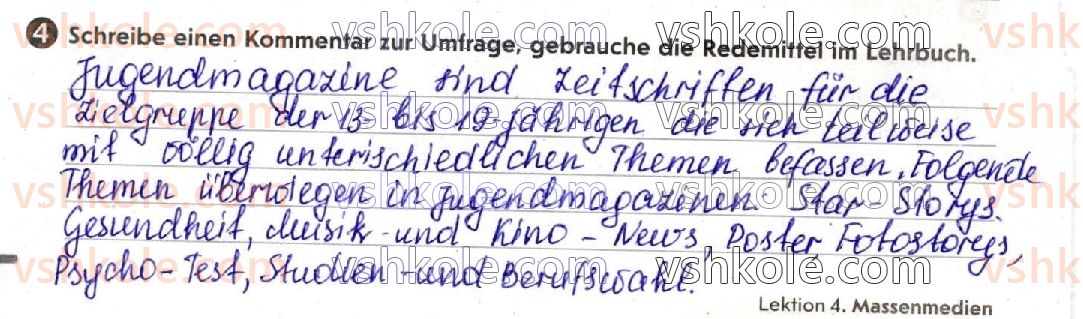 4 Schreibe einen Kommentar zur Umfrage, gebrauche die Redemittel im Lehrbuch.
Jugendmagazine sind Zeitschriften für die
Zielgruppe der 13- bis 19-jährigen die sich teilweise
mit völlig unterischiedlichen Themen befassen. Folgende
Themen überwiegen in Jugendmagazinen Star-Storys.
Gesundheit, Musik-und Kino-News, Poster, Fotostorys,
Psycho-Test, Studien-und Berufswahl.
Lektion 4. Massenmedien